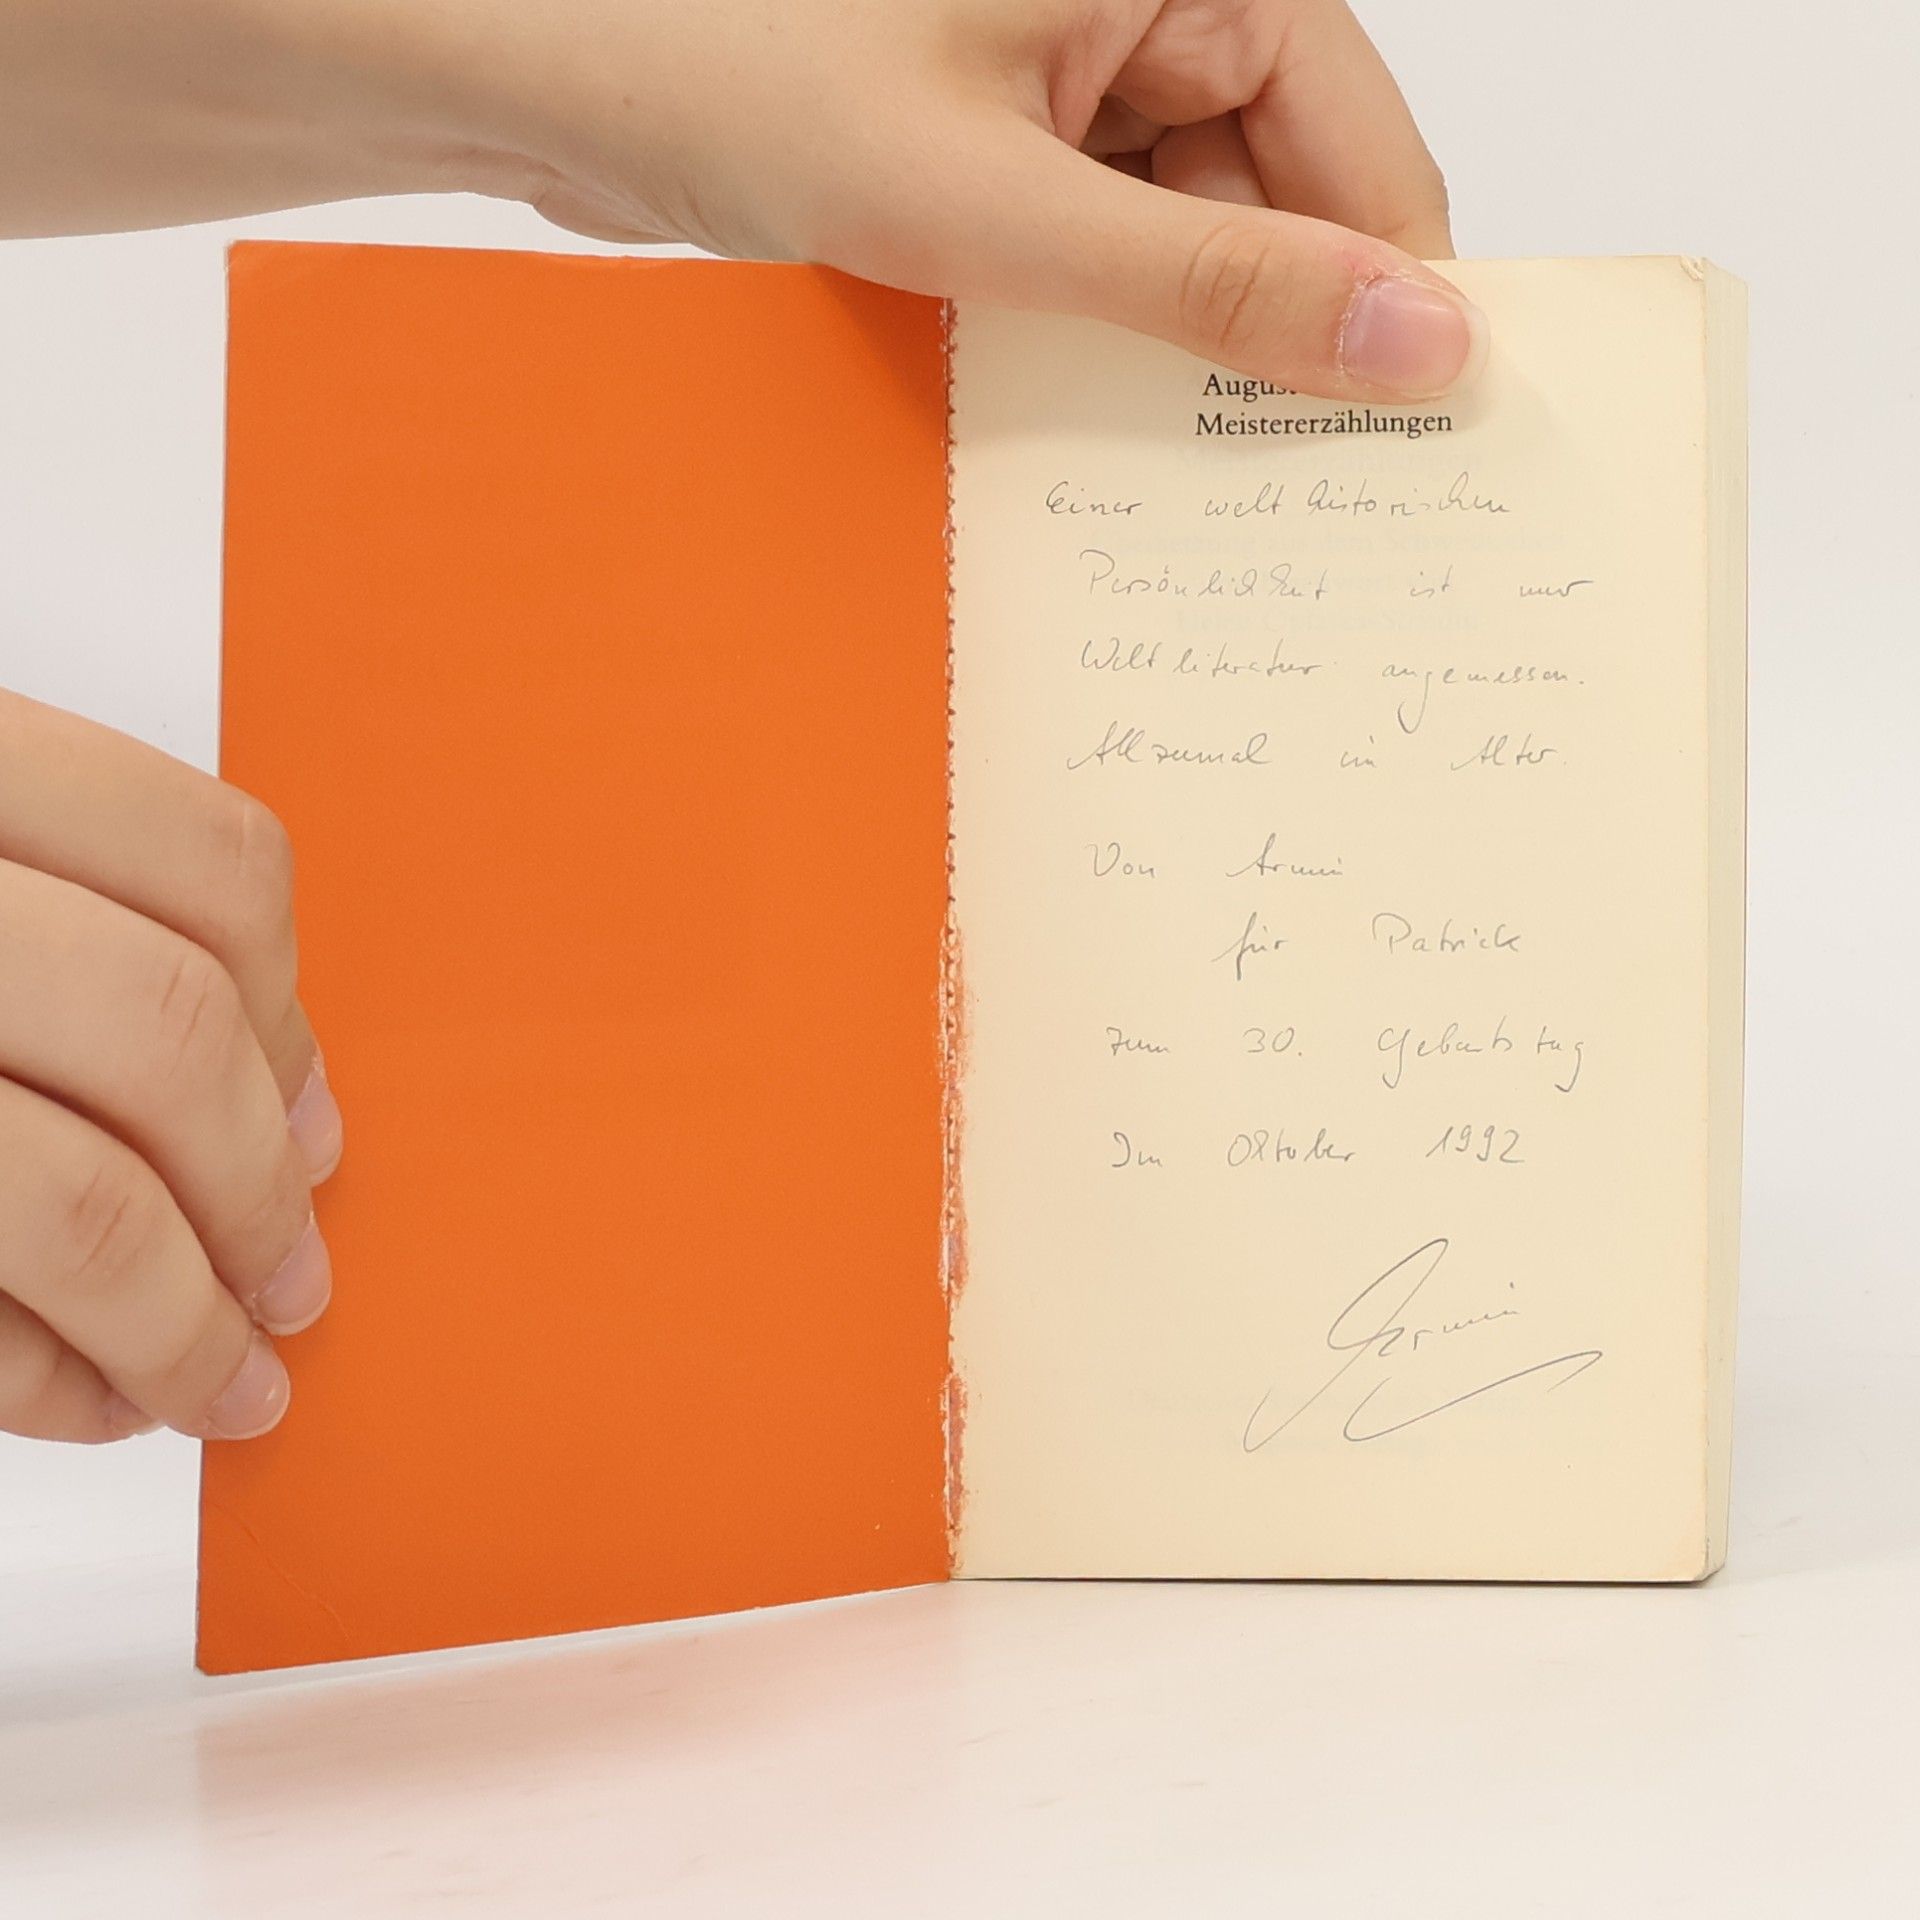 August
Meistererzählungen
Einer welthistorischen
Persönlichkeit ist nur
Weltliteratur angemessen.
Allzumal im Alter.
Von Armin
für Patrick
zum 30. Geburtstag
Im Oktober 1992
Armin